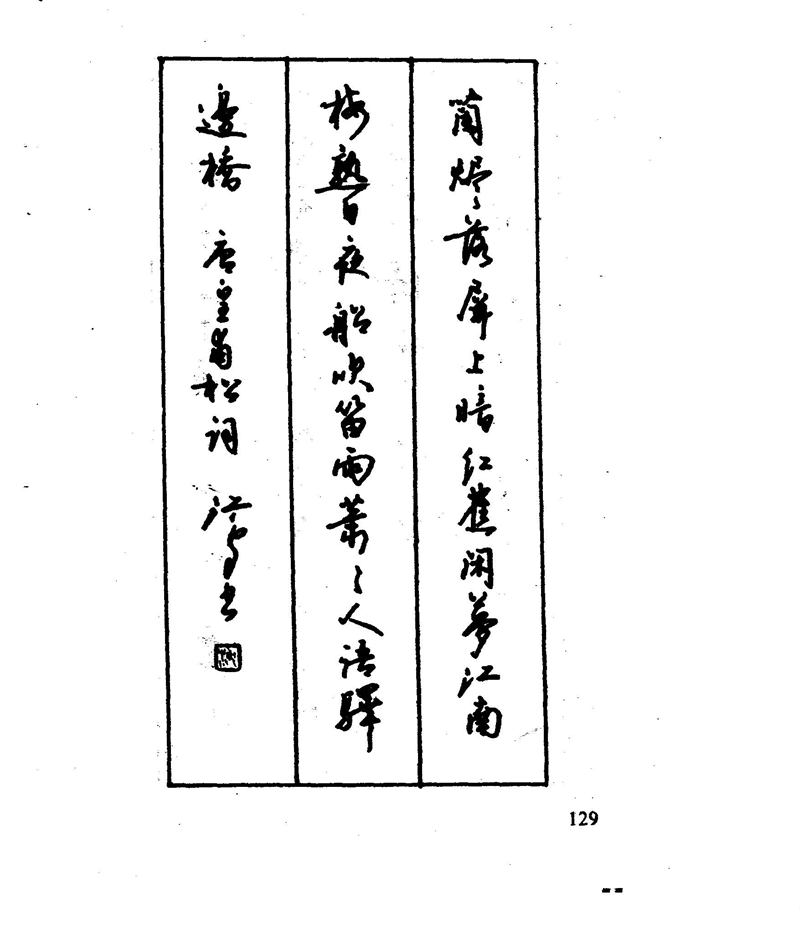 蘭烬落屏上暗红蕉闲夢江南
梅熟日夜船吹笛雨萧々人语驛
邊橋 唐皇甫松词 书
129